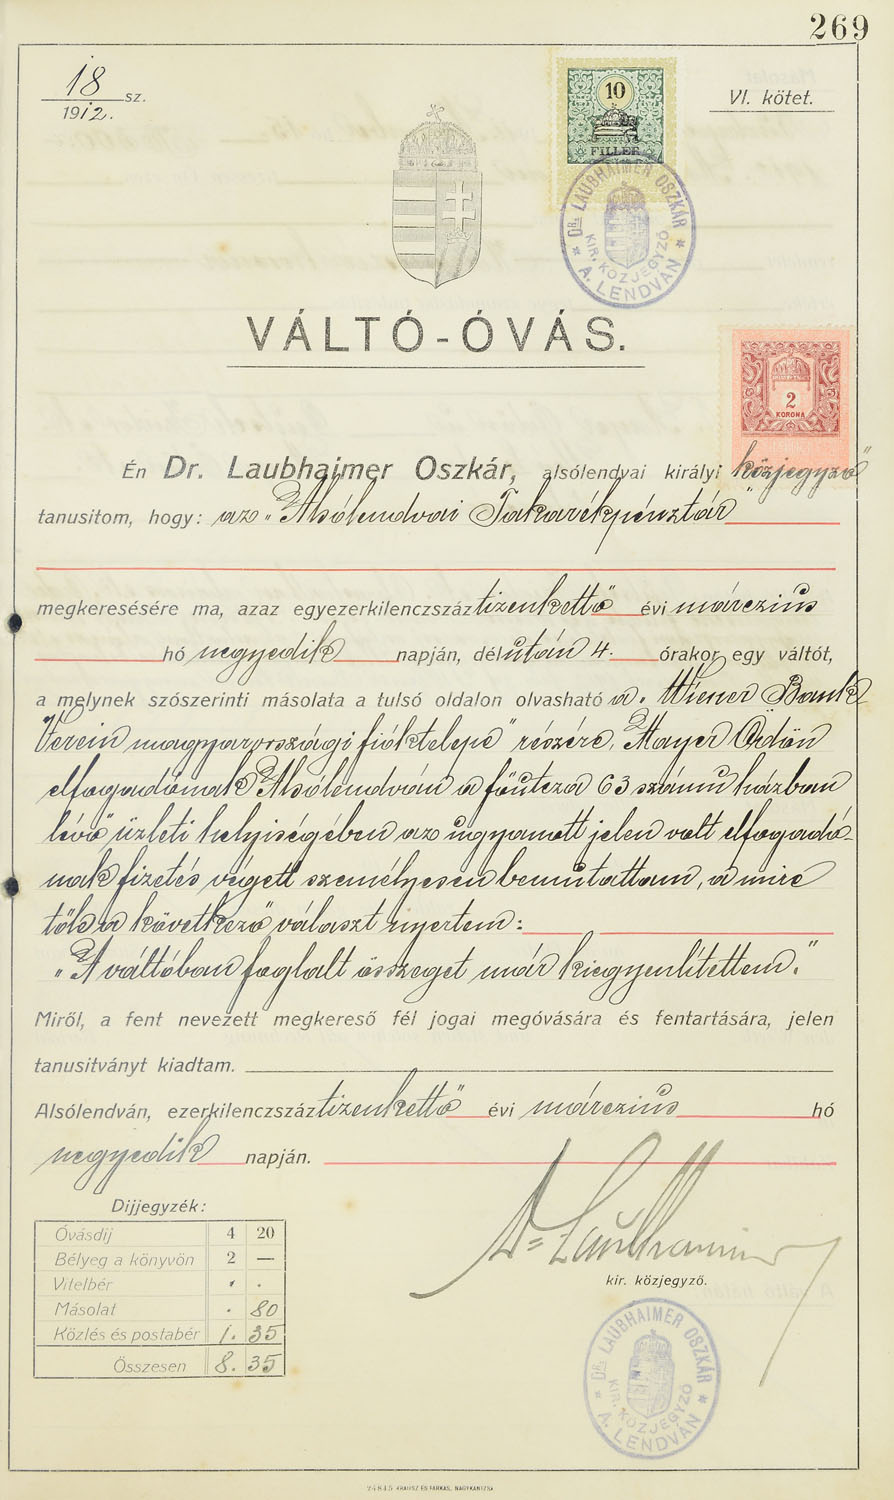 269
18 sz.
1912.
VI. kötet.
10
FILLÉR
DR. LAUBHAIMER OSZKÁR
KIR. KÖZJEGYZŐ
A. LENDVÁN
VÁLTÓ-ÓVÁS.
2
KORONA
Én Dr. Laubhaimer Oszkár, alsólendvai királyi közjegyző
tanusitom, hogy: az „Alsólendvai Takarékpénztár"
megkeresésére ma, azaz egyezerkilenczszáztizenkettő évi márczius
hó negyedik napján, délután 4 órakor egy váltót,
a melynek szószerinti másolata a tulsó oldalon olvasható a „Wiener Bank
Verein magyarországi fióktelepe" részére, Mayer Ödön
elfogadónak Alsólendván a főutcza 63 számu házban
lévő üzleti helyiségében az ugyanott jelen volt elfogadó-
nak fizetés végett személyesen bemutattam, a mire
tőle a következő választ nyertem:
„A váltóban foglalt összeget már kiegyenlítettem."
Miről, a fent nevezett megkereső fél jogai megóvására és fentartására, jelen
tanusitványt kiadtam.
Alsólendván, ezerkilenczszáztizenkettő évi márczius hó
negyedik napján.
Dijjegyzék:
Óvásdij 4 20
Bélyeg a könyvön 2 —
Vitelbér
Másolat . 80
Közlés és postabér 1. 35
Összesen 8. 35
Dr Laubhaimer
kir. közjegyző.
DR. LAUBHAIMER OSZKÁR
KIR. KÖZJEGYZŐ
A. LENDVÁN
24845 KRAUSZ ÉS FARKAS, NAGYKANIZSA